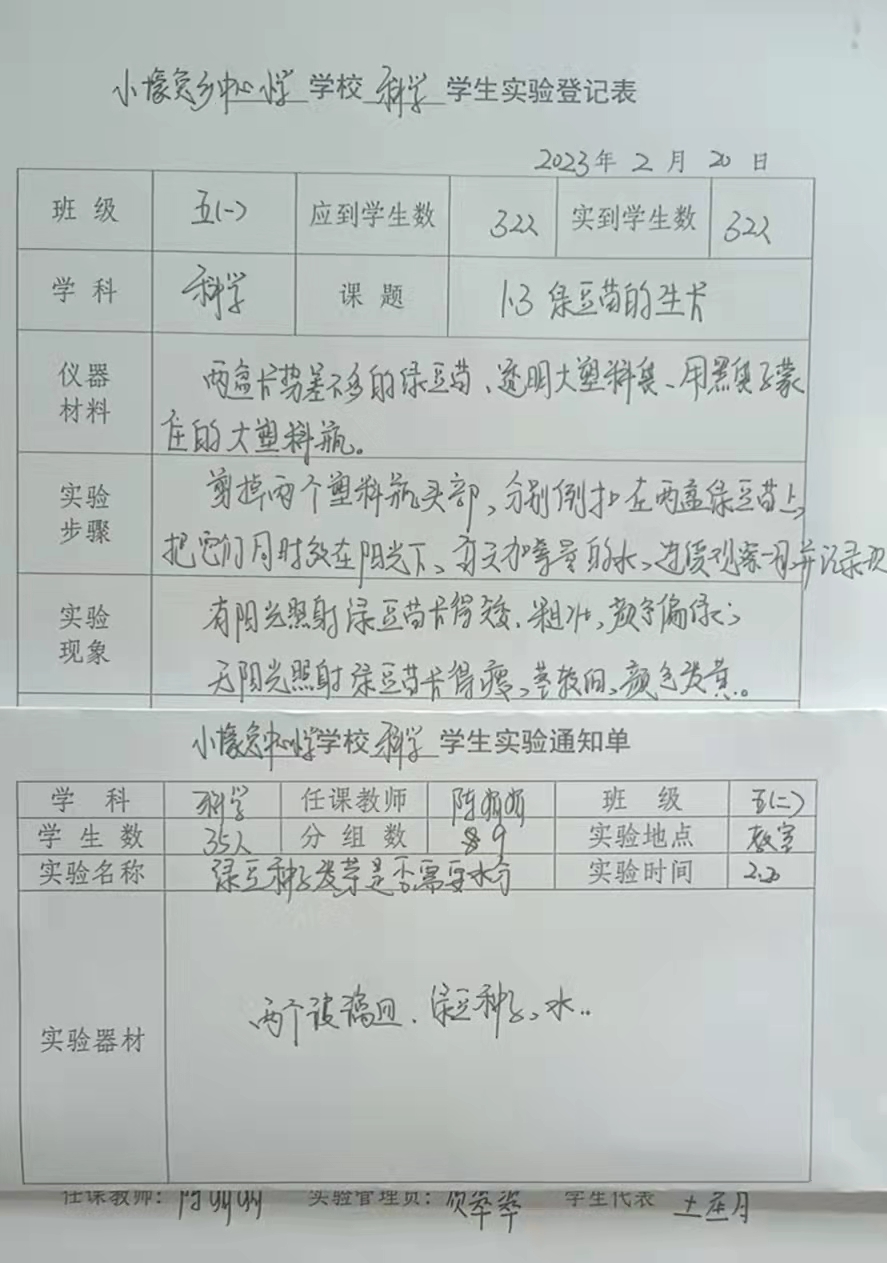 小壕兔乡中心小学 学校 科学 学生实验登记表
2023年 2 月 20 日
班 级 五(一) 应到学生数 32人 实到学生数 32人
学 科 科学 课 题 1.3 绿豆苗的生长
仪器材料 两盆长势差不多的绿豆苗、透明大塑料
住的大塑料瓶。
实验步骤 剪掉两个塑料瓶头部、分别倒扣在两盆绿豆苗上、
把它们同时放在阳光下、每天加等量的水、连续观察一周并记录
实验现象 有阳光照射绿豆苗长得矮、粗壮、颜色偏绿;
无阳光照射绿豆苗长得瘦、茎较细、颜色发黄。
小壕兔中心小学 学校 科学 学生实验通知单
学 科 科学 任课教师 陈娟娟 班 级 五(二)
学 生 数 35人 分 组 数 9 实验地点 教室
实验名称 绿豆种子发芽是否需要水分 实验时间 2.20
实验器材 两个玻璃皿、绿豆种子、水..
任课教师: 陈娟娟 实验管理员: 翠翠 学生代表